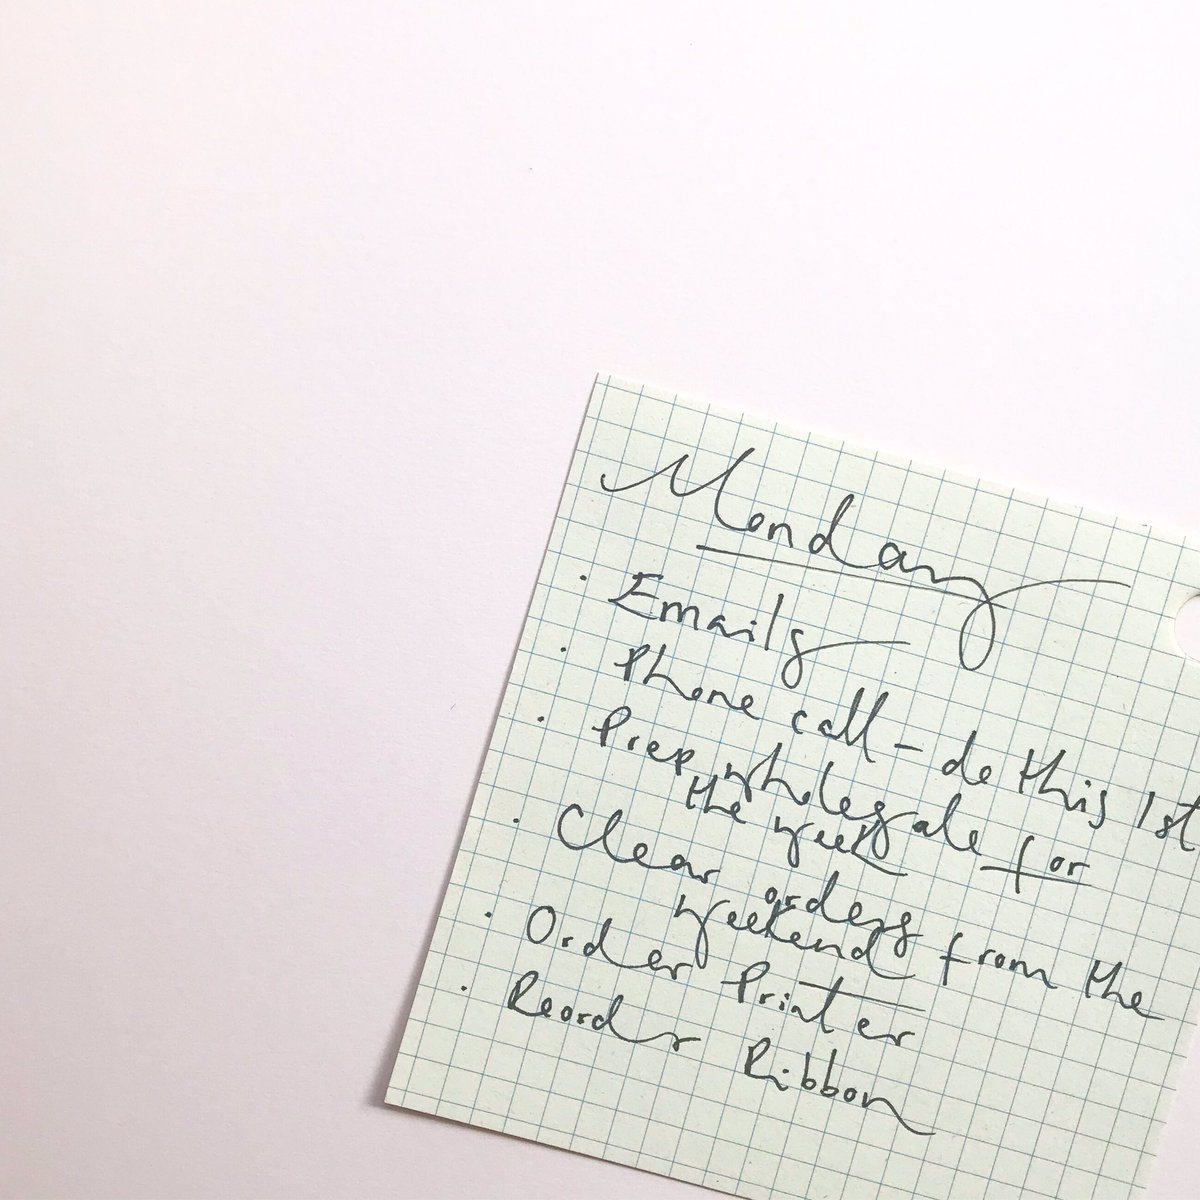 Monday
· Emails
· Phone call – do this 1st
· Prep wholesale for
the week
· Clear orders from the
weekend
· Order Printer
· Reorder Ribbon